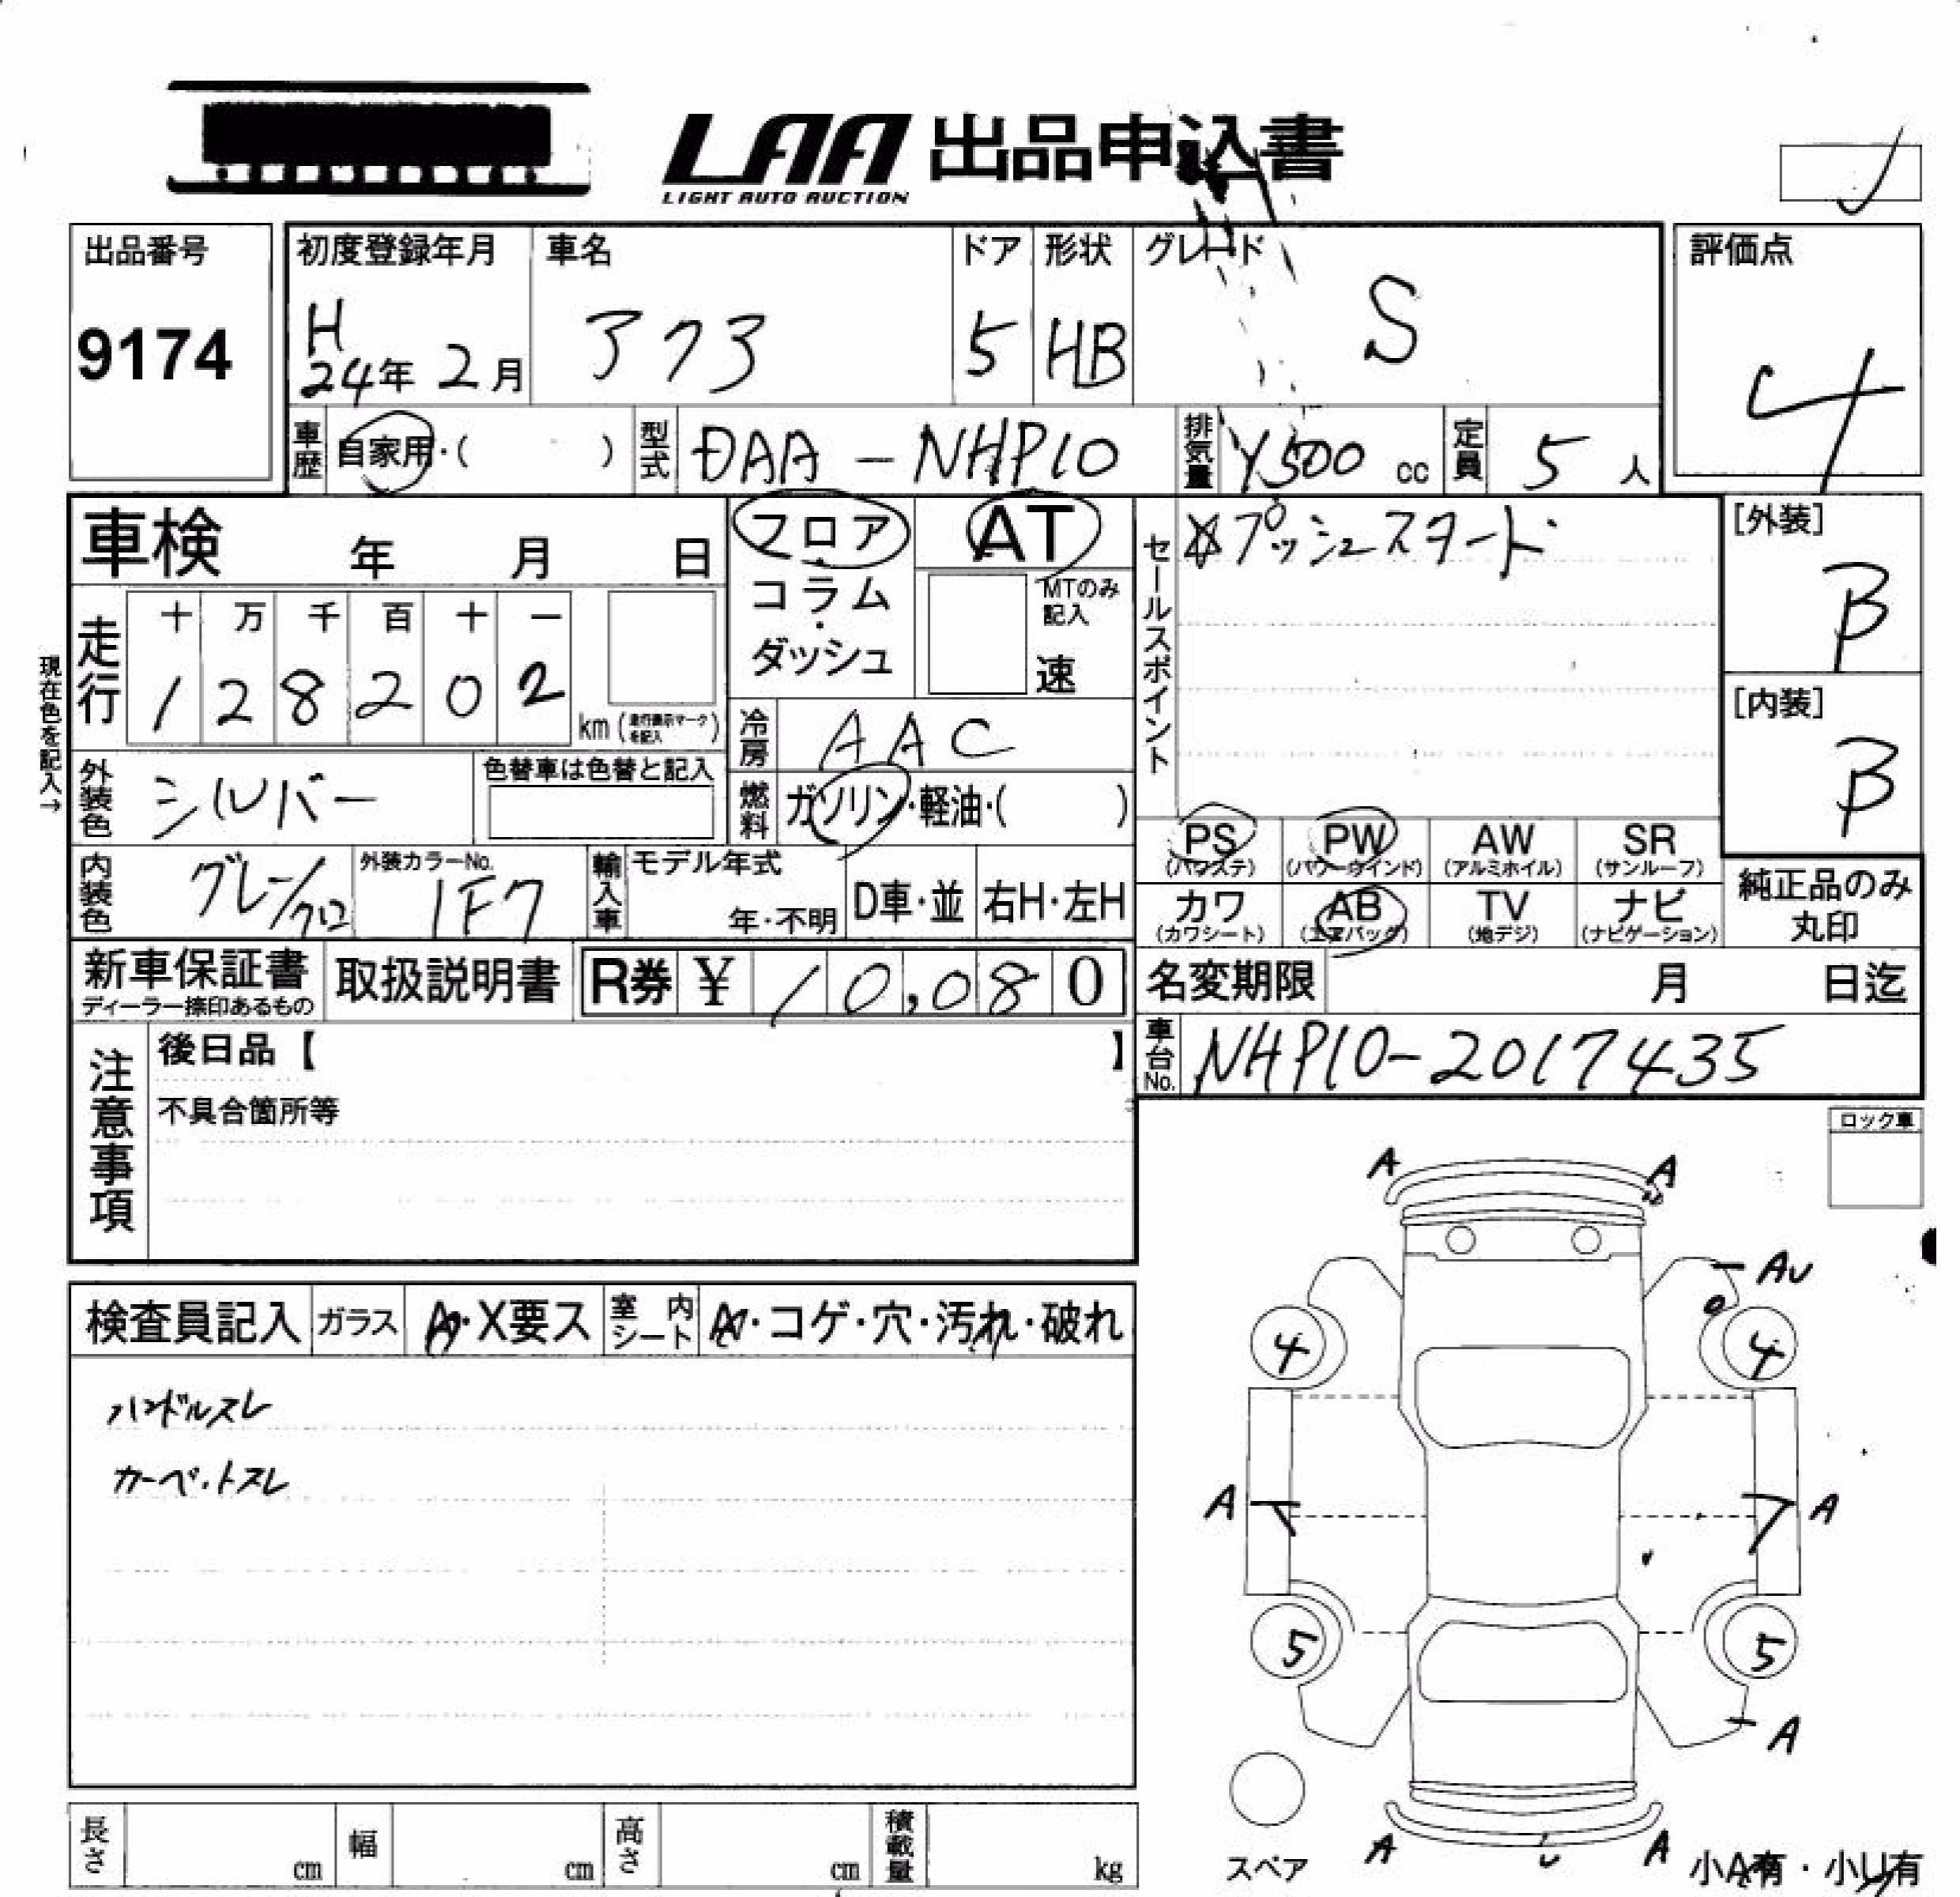 LAA 出品申込書
LIGHT AUTO AUCTION
出品番号
9174
初度登録年月
H
24年 2月
車名
アクア
ドア
5
形状
HB
グレード
S
評価点
4
車歴 自家用・( )
型式 DAA - NHP10
排気量 1500 cc
定員 5 人
車検 年 月 日
フロア
・
コラム
・
ダッシュ
AT
MTのみ
記入
速
セールスポイント
☆プッシュスタート
[外装]
B
[内装]
B
現在色を記入→
走行
十 万 千 百 十 一
1 2 8 2 0 2
km (走行表示マークを記入)
冷房 AAC
外装色 シルバー
色替車は色替と記入
燃料 ガソリン・軽油・( )
内装色 グレー/クロ
外装カラーNo.
1F7
輸入車
モデル年式
年・不明
D車・並
右H・左H
PS
(パワステ)
PW
(パワーウインド)
AW
(アルミホイル)
SR
(サンルーフ)
カワ
(カワシート)
AB
(エアバッグ)
TV
(地デジ)
ナビ
(ナビゲーション)
純正品のみ
丸印
新車保証書
ディーラー捺印あるもの
取扱説明書
R券 ¥ 10,080
名変期限 月 日迄
車台No. NHP10-2017435
注意事項
後日品【 】
不具合箇所等
ロック車
検査員記入
ガラス
A・X要ス
室内シート
A・コゲ・穴・汚れ・破れ
ハンドルスレ
カーペットスレ
A A
AU
4 4
A A
5 5
A
A U A
スペア
小A有・小U有
長さ cm
幅 cm
高さ cm
積載量 kg